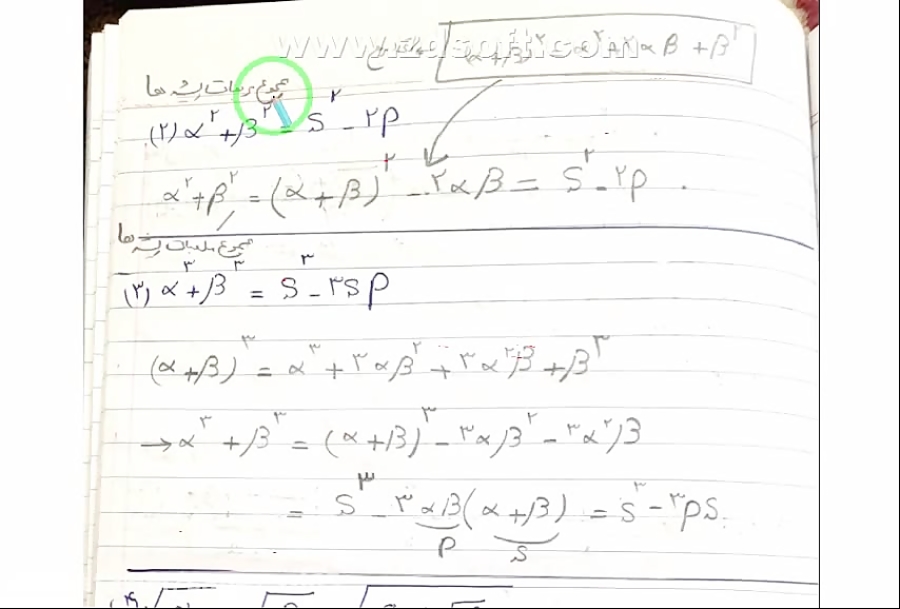 (α+β)^۲ = α^۲ + ۲αβ + β^۲
مجموع مربعات ریشه ها
(۲) α^۲ + β^۲ = S^۲ - ۲P
α^۲ + β^۲ = (α + β)^۲ - ۲αβ = S^۲ - ۲P .
مجموع مکعبات ریشه ها
(۳) α^۳ + β^۳ = S^۳ - ۳SP
(α + β)^۳ = α^۳ + ۳αβ^۲ + ۳α^۲β + β^۳
→ α^۳ + β^۳ = (α + β)^۳ - ۳αβ^۲ - ۳α^۲β
= S^۳ - ۳αβ(α + β) = S^۳ - ۳PS
P S